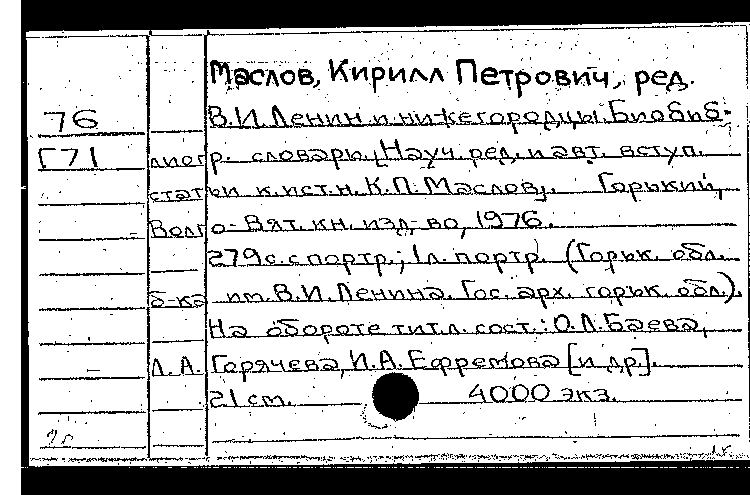 Маслов, Кирилл Петрович, ред.
76 В.И.Ленин и нижегородцы. Биобиб-
Г71 лиогр. словарь. [Науч. ред. и авт. вступ.
статьи к. ист. н. К.П. Маслов]. Горький,
Волго-Вят. кн. изд-во, 1976.
279 с. с портр.; 1 л. портр. (Горьк. обл.
б-ка им. В.И.Ленина. Гос. арх. горьк. обл.).
На обороте титл. сост.: О.Л.Баева,
Л.А. Горячева, И.А. Ефремова [и др].
21 см. 4000 экз.